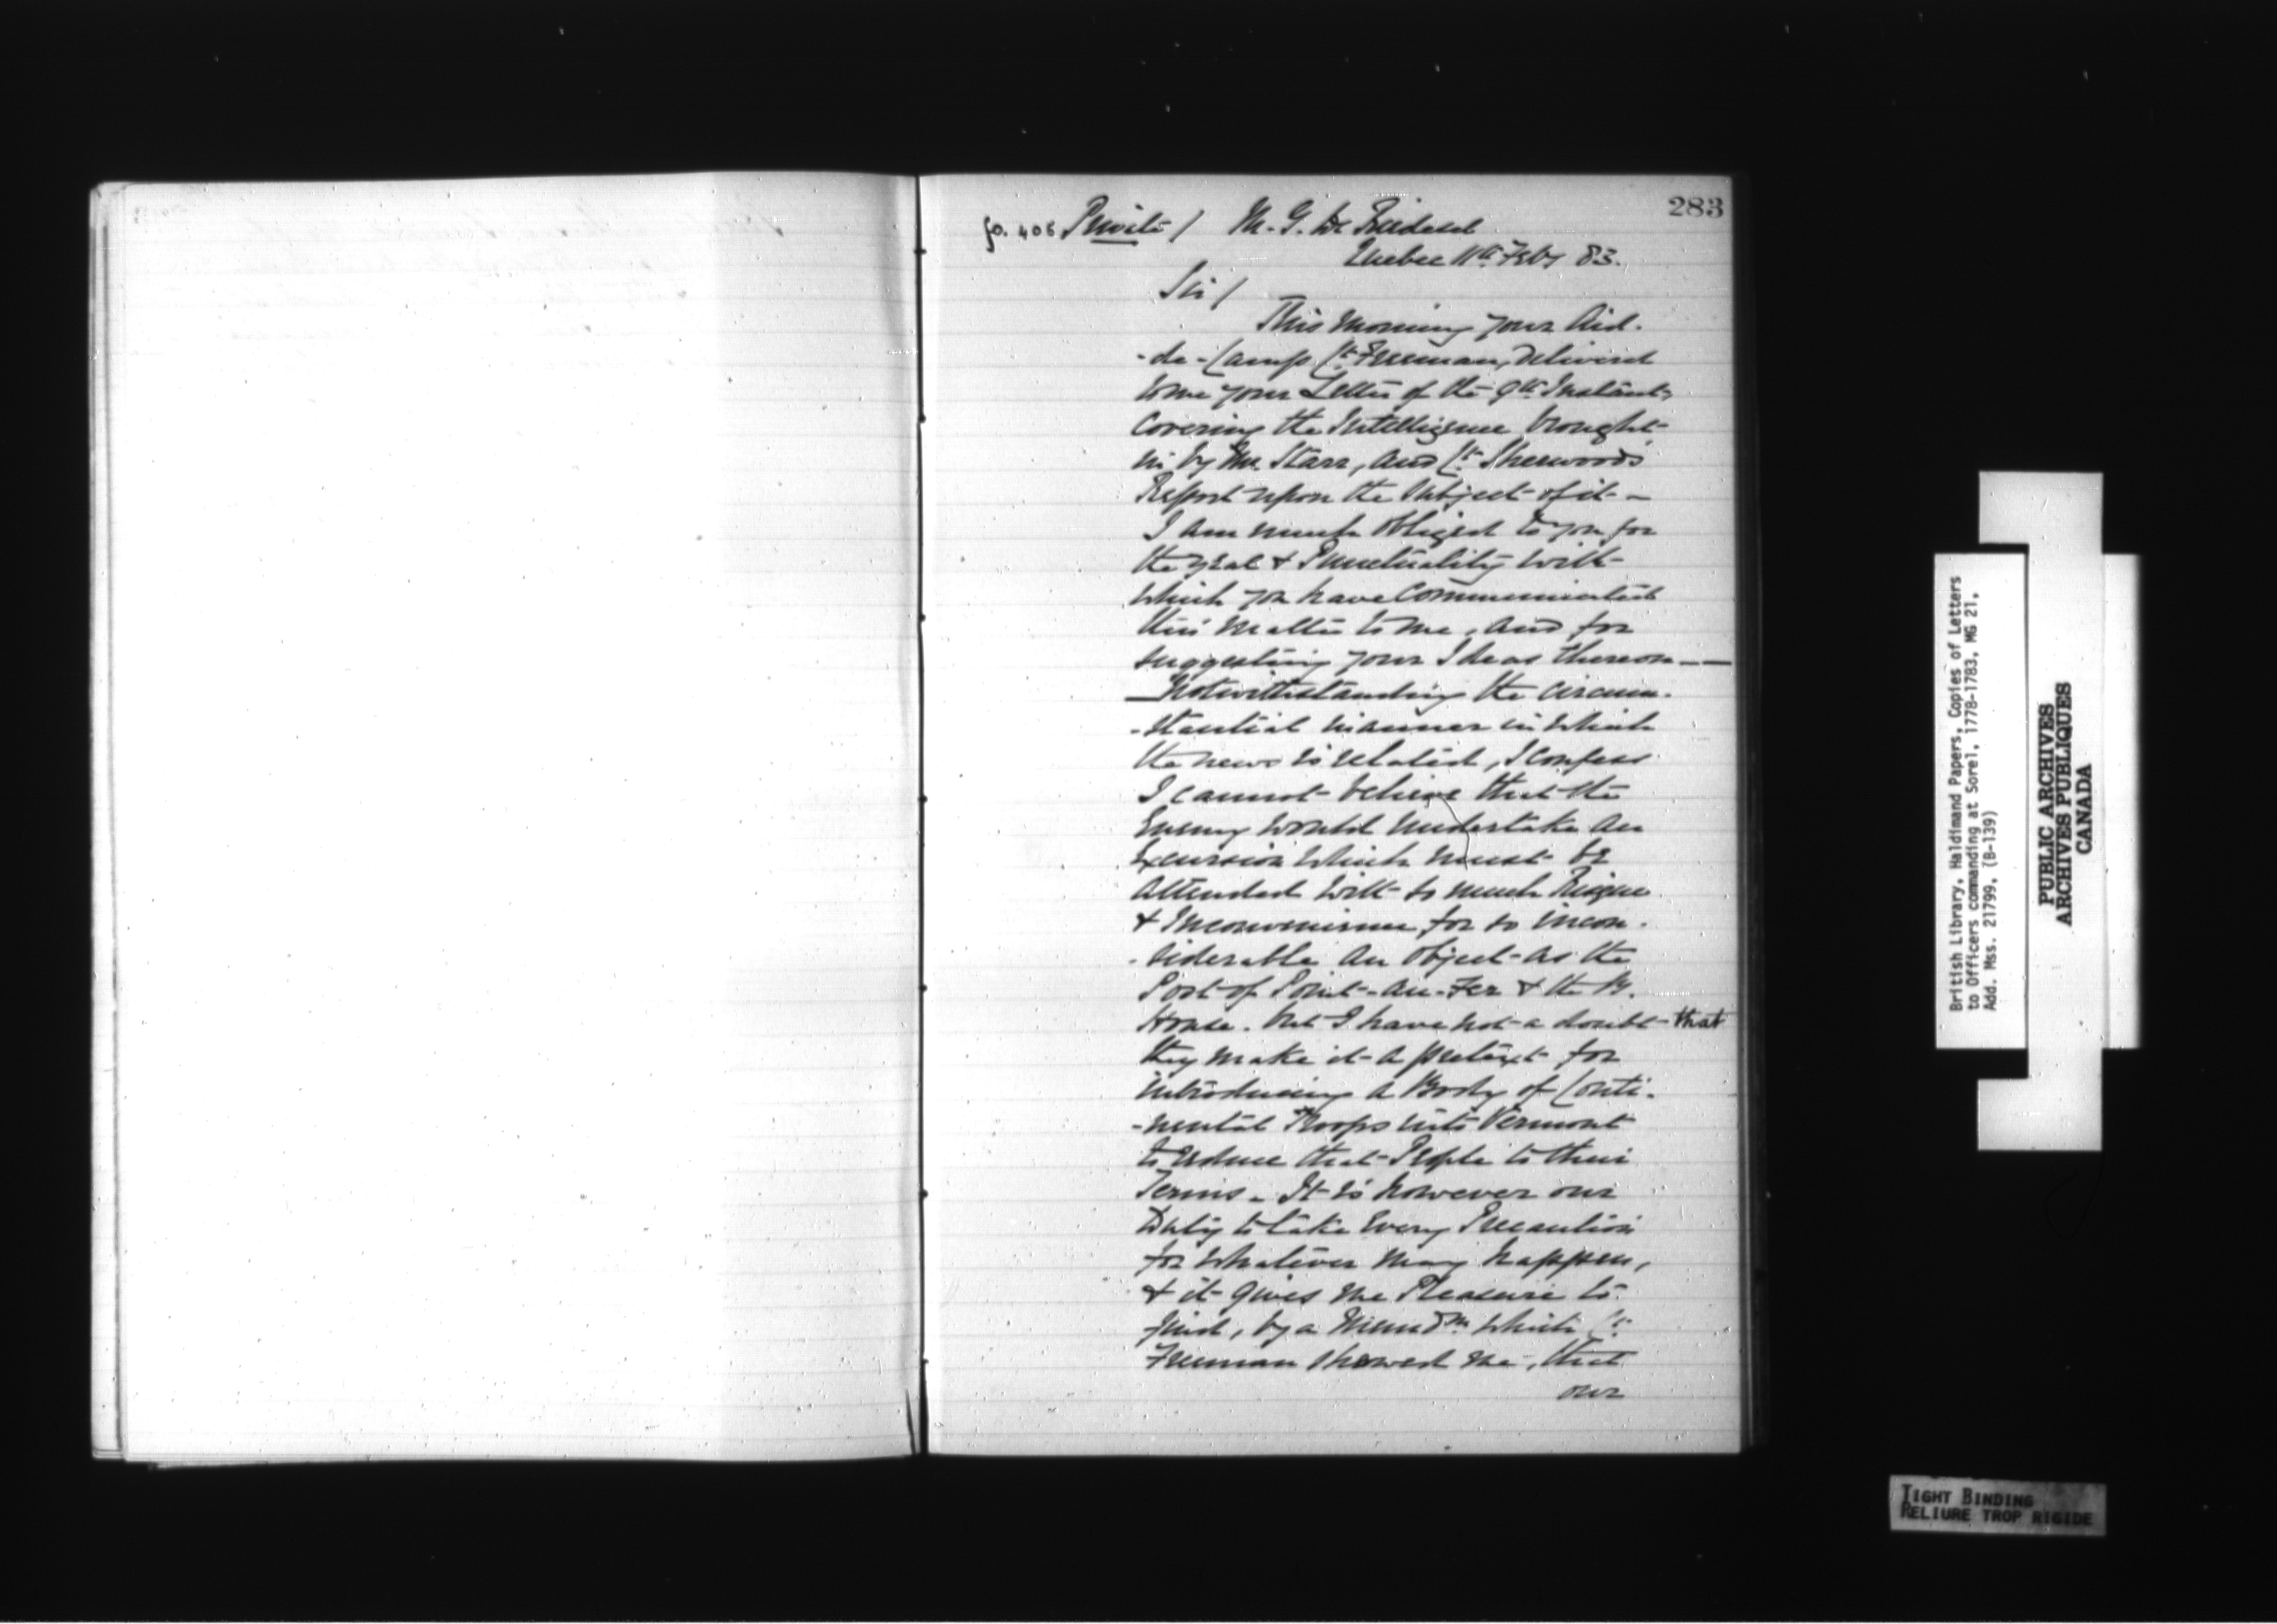 283
fo. 406 Private / M. G. De Riedesel
Quebec 11th Feby 83.
Sir /
This Morning your Aid-
-de-Camp Ct. Freeman, delivered
to me your Letter of the 9th Instant,
Covering the Intelligence brought
in by Mr. Starr, and Ct. Sherwood's
Report upon the Subject of it —
I am much obliged to you for
the zeal & Punctuality with
which you have Communicated
this matter to me, and for
suggesting your Ideas thereon —
— Notwithstanding the circum-
-stantial manner in which
the news is related, I confess
I cannot believe that the
Enemy would undertake an
Excursion which must be
attended with so much Risque
& Inconvenience, for so incon-
-siderable an Object as the
Post of Point-au-Fer & the B.
House. But I have not a doubt that
they make it a pretext for
introducing a Body of Conti-
-nental Troops into Vermont
to reduce that People to their
Terms. It is however our
Duty to take Every Precaution
for whatever may happen,
& it gives me Pleasure to
find, by a Memdm which Ct.
Freeman showed me, that
our
British Library, Haldimand Papers, Copies of Letters
to Officers commanding at Sorel, 1778-1783, MG 21,
Add. Mss. 21799, (B-139)
PUBLIC ARCHIVES
ARCHIVES PUBLIQUES
CANADA
TIGHT BINDING
RELIURE TROP RIGIDE